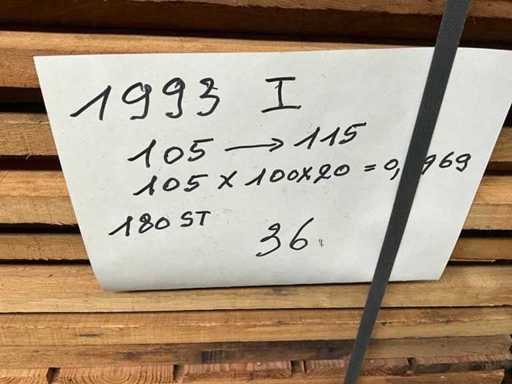 1993 I
105 → 115
105 X 100X20 =
180 ST
36